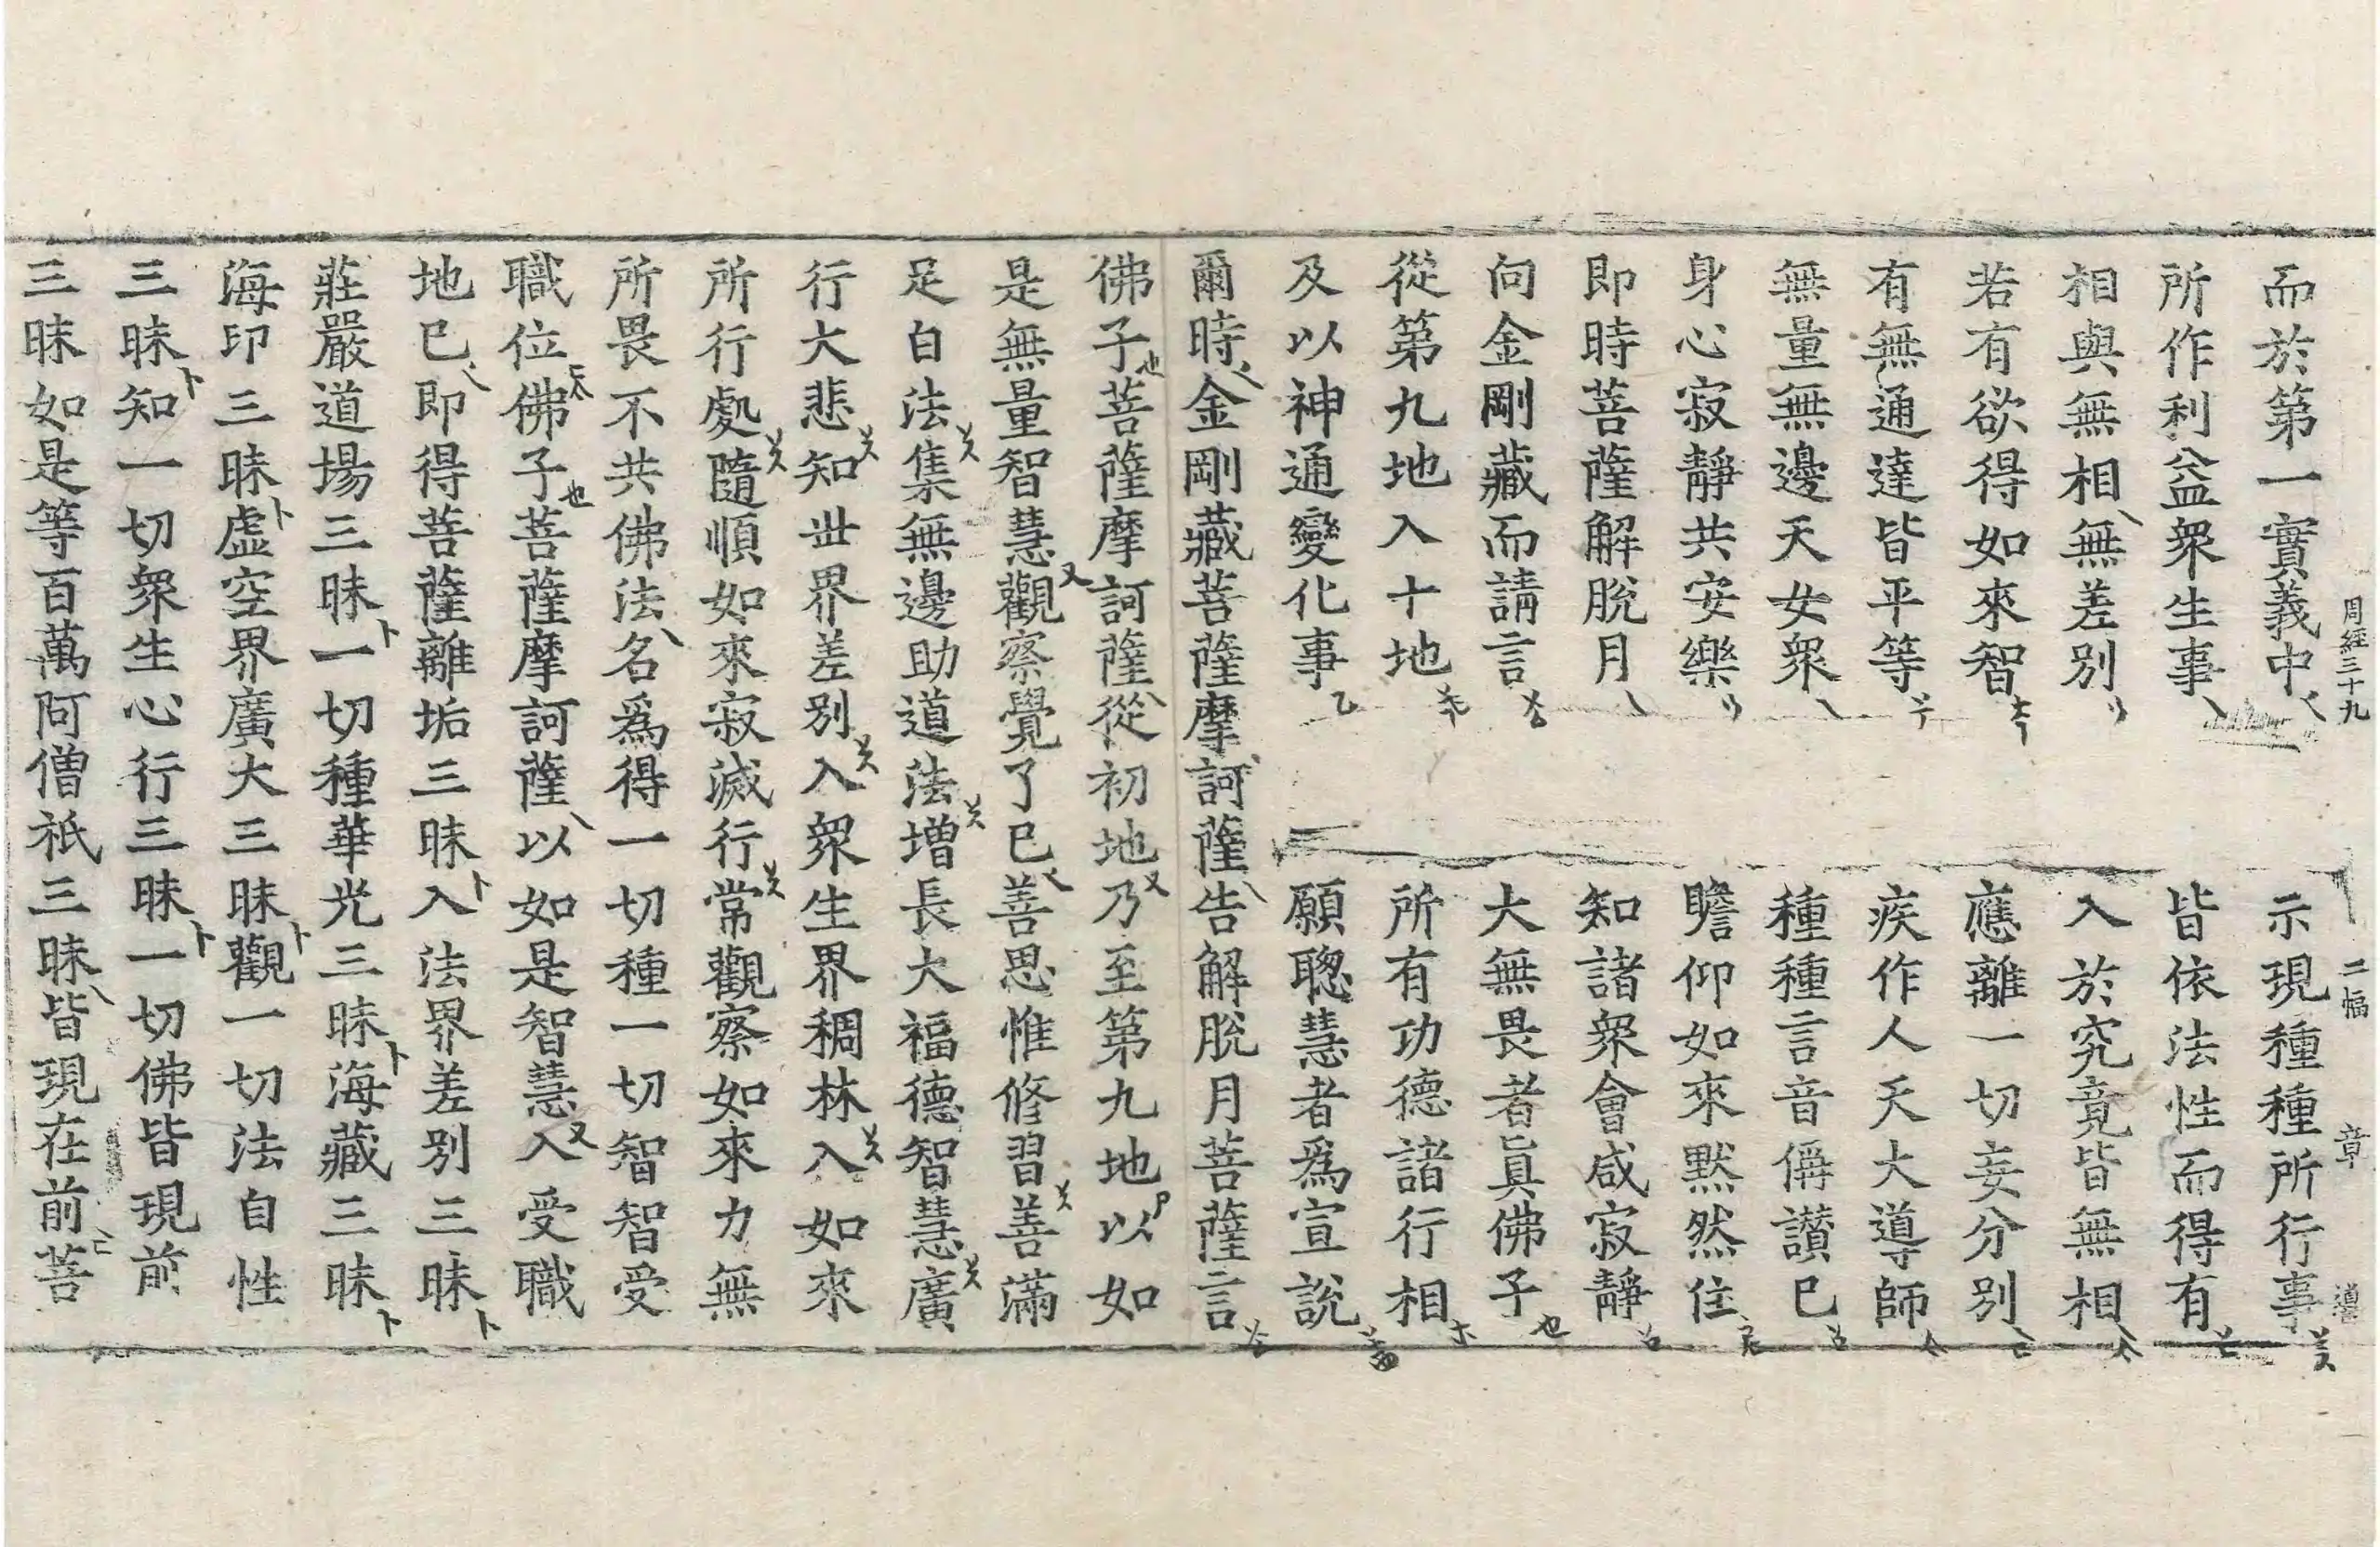 周經三十九　二幅　章
而於第一實義中　示現種種所行事
所作利益衆生事　皆依法性而得有
相與無相無差別　入於究竟皆無相
若有欲得如來智　應離一切妄分別
有無通達皆平等　疾作人天大導師
無量無邊天女衆　種種言音偁讃已
身心寂靜共安樂　瞻仰如來黙然住
即時菩薩解脫月　知諸衆會咸寂靜
向金剛藏而請言　大無畏者眞佛子
從第九地入十地　所有功德諸行相
及以神通變化事　願聦慧者爲宣說
爾時金剛藏菩薩摩訶薩告解脫月菩薩言
佛子菩薩摩訶薩從初地乃至第九地以如
是無量智慧觀察覺了已善思惟修習善滿
足白法集無邊助道法增長大福德智慧廣
行大悲知世界差別入衆生界稠林入如來
所行處隨順如來寂滅行常觀察如來力無
所畏不共佛法名爲得一切種一切智智受
職位佛子菩薩摩訶薩以如是智慧入受職
地已即得菩薩離垢三昧入法界差別三昧
莊嚴道場三昧一切種華光三昧海藏三昧
海印三昧虛空界廣大三昧觀一切法自性
三昧知一切衆生心行三昧一切佛皆現前
三昧如是等百萬阿僧祇三昧皆現在前菩